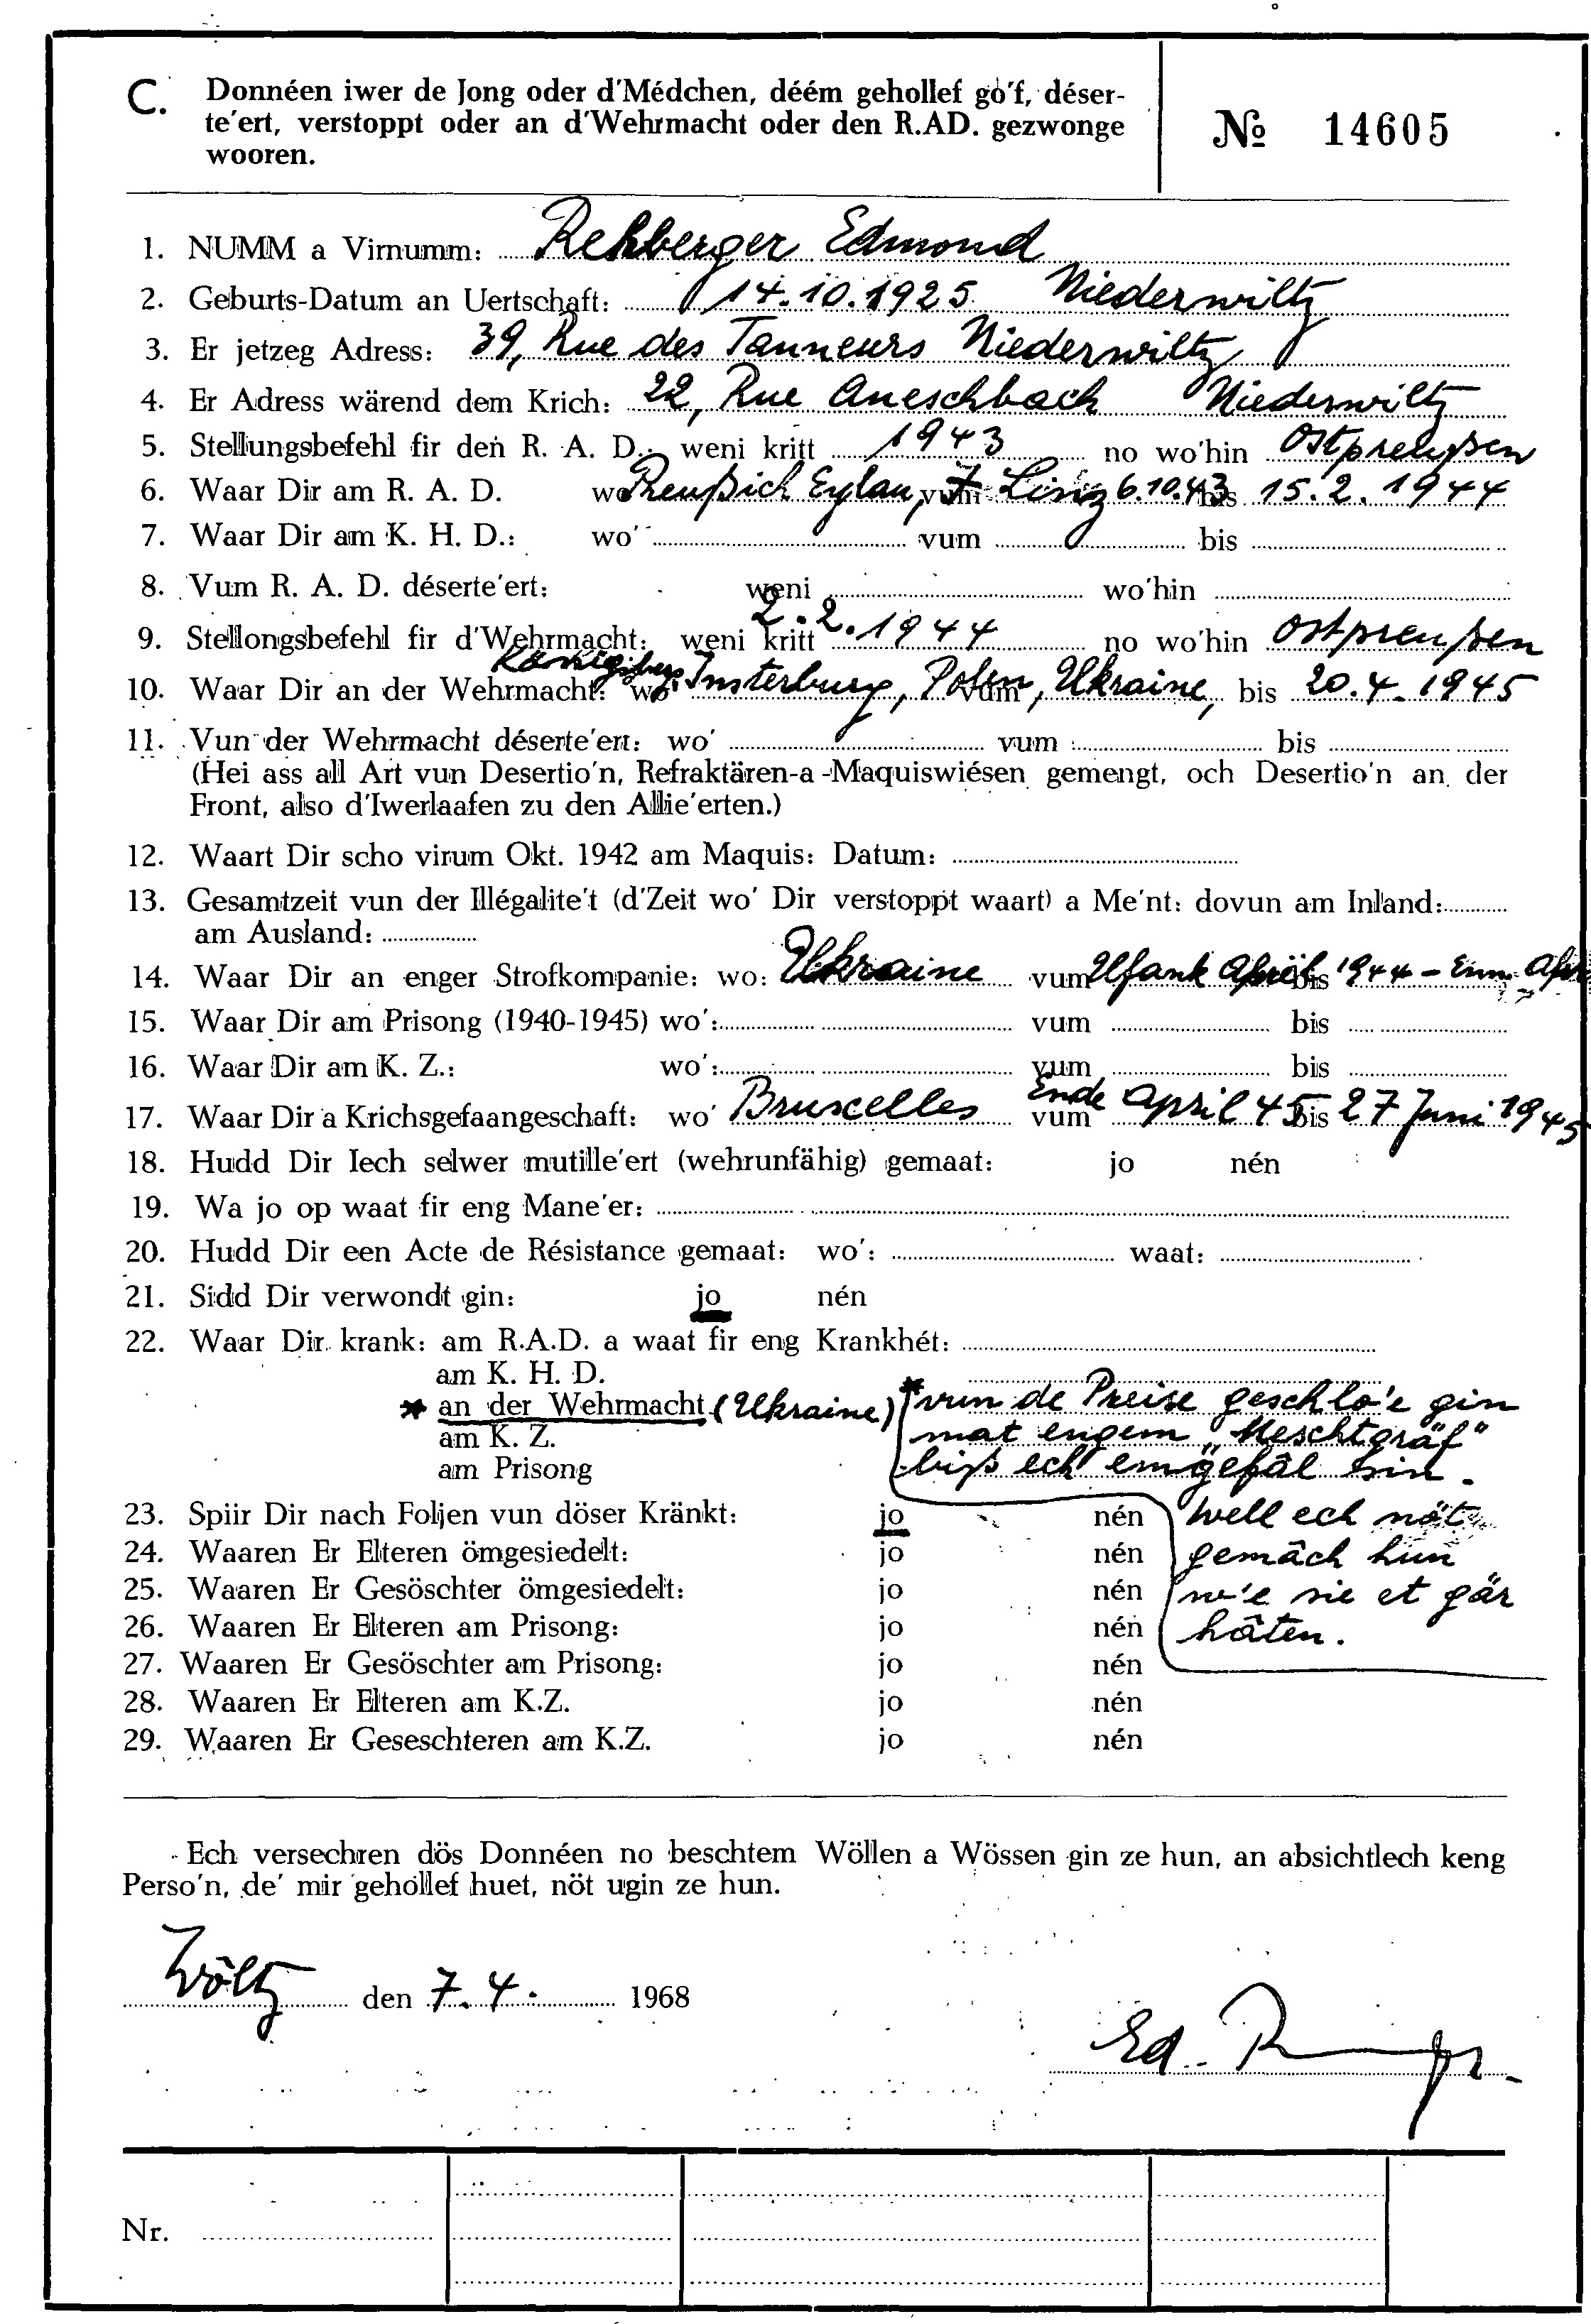 C. Donnéen iwer de Jong oder d'Médchen, déém gehollef go'f, déser-
te'ert, verstoppt oder an d'Wehrmacht oder den R.AD. gezwonge
wooren.
№ 14605
1. NUMM a Virnumm: Rehberger Edmond
2. Geburts-Datum an Uertschaft: 14.10.1925 Niederwiltz
3. Er jetzeg Adress: 39, Rue des Tanneurs Niederwiltz
4. Er Adress wärend dem Krich: 22, Rue Aneschbach Niederwiltz
5. Stellungsbefehl fir den R. A. D.: weni kritt 1943 no wo'hin Ostpreußen
6. Waar Dir am R. A. D. wo Preußich Eylau, vum Linz 6.10.43 bis 15.2.1944
7. Waar Dir am K. H. D.: wo' vum bis
8. Vum R. A. D. déserte'ert: weni wo'hin
9. Stellongsbefehl fir d'Wehrmacht: weni kritt 2.2.1944 no wo'hin Ostpreußen
10. Waar Dir an der Wehrmacht: wo' Königsberg Insterburg, Polen, vum Ukraine, bis 20.4.1945
11. Vun der Wehrmacht déserte'ert: wo' vum bis
(Hei ass all Art vun Desertio'n, Refraktären-a-Maquiswiésen gemengt, och Desertio'n an der
Front, also d'Iwerlaafen zu den Allie'erten.)
12. Waart Dir scho virum Okt. 1942 am Maquis: Datum:
13. Gesamtzeit vun der Illégalite't (d'Zeit wo' Dir verstoppt waart) a Me'nt: dovun am Inland:
am Ausland:
14. Waar Dir an enger Strofkompanie: wo: Ukraine vum Ufank April bis 1944 - Enn Apr
15. Waar Dir am Prisong (1940-1945) wo': vum bis
16. Waar Dir am K. Z.: wo': vum bis
17. Waar Dir a Krichsgefaangeschaft: wo' Bruxelles vum Ende April 45 bis 27 Juni 1945
18. Hudd Dir Iech selwer mutille'ert (wehrunfähig) gemaat: jo nén
19. Wa jo op waat fir eng Mane'er:
20. Hudd Dir een Acte de Résistance gemaat: wo': waat:
21. Sidd Dir verwondt gin: jo nén
22. Waar Dir krank: am R.A.D. a waat fir eng Krankhét:
am K. H. D.
* an der Wehrmacht (Ukraine) * vun de Preise geschlo'e gin
am K. Z. mat engem "Meschtgräf"
am Prisong biß ech emgefâl sin.
23. Spiir Dir nach Foljen vun döser Kränkt: jo nén well ech nöt
24. Waaren Er Elteren ömgesiedelt: jo nén gemâch hun
25. Waaren Er Gesöschter ömgesiedelt: jo nén w'e sie et gär
26. Waaren Er Elteren am Prisong: jo nén hâten.
27. Waaren Er Gesöschter am Prisong: jo nén
28. Waaren Er Elteren am K.Z. jo nén
29. Waaren Er Geseschteren am K.Z. jo nén
Ech versechren dös Donnéen no beschtem Wöllen a Wössen gin ze hun, an absichtlech keng
Perso'n, de' mir gehollef huet, nöt ugin ze hun.
Wöltz den 7.4. 1968
Ed.
Nr.